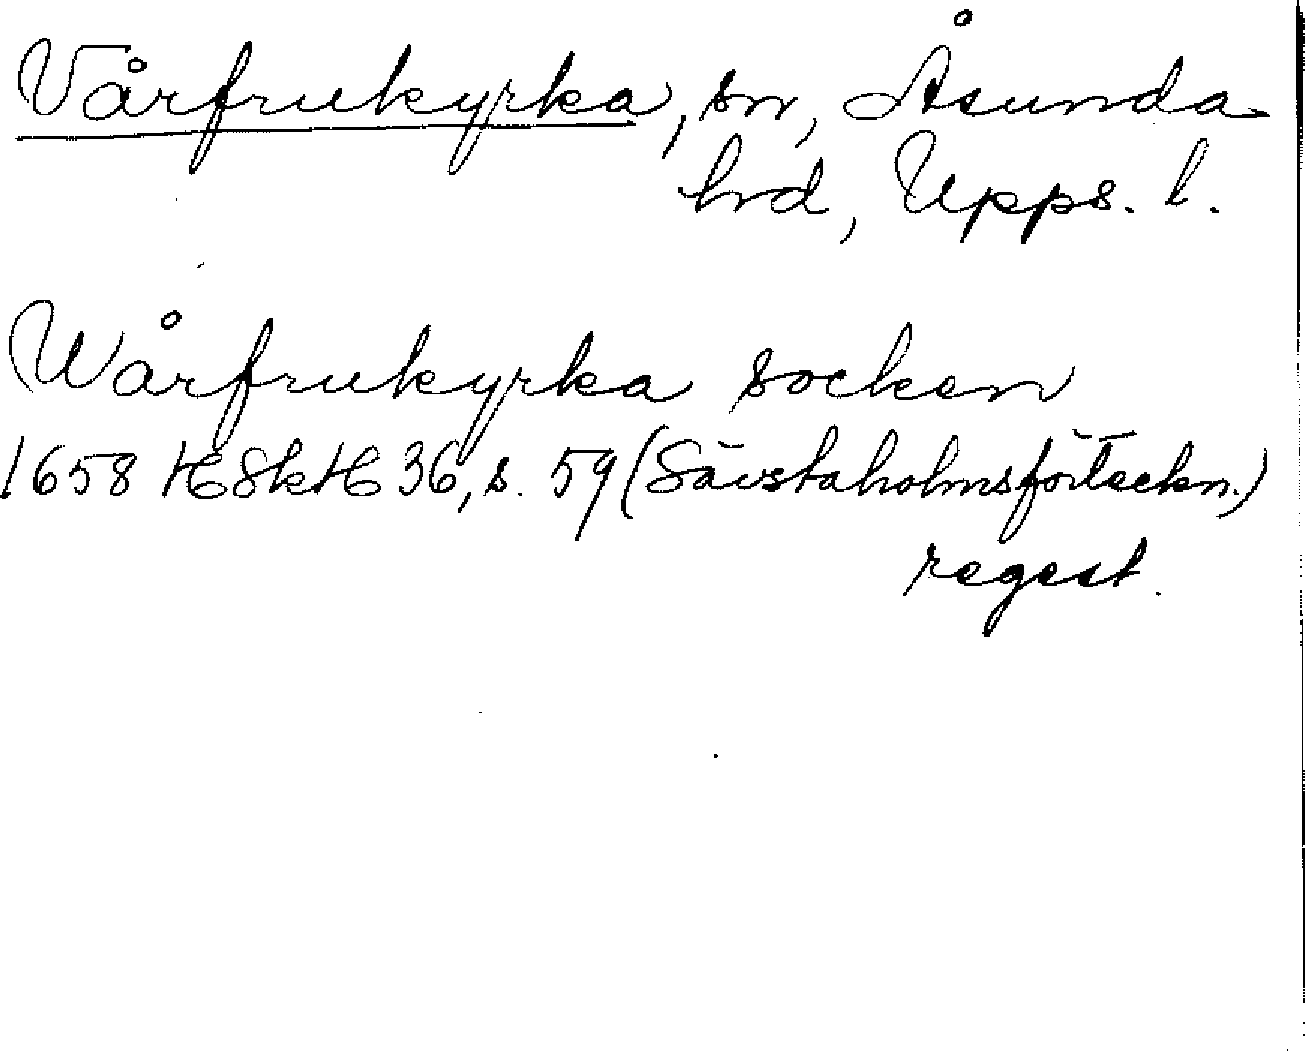 Vårfrukyrka, sn, Åsunda
hrd, Upps. l.
Wårfrukyrka socken
1658 HSkH 36, s. 59 (Sävstaholmsförteckn.)
regest.